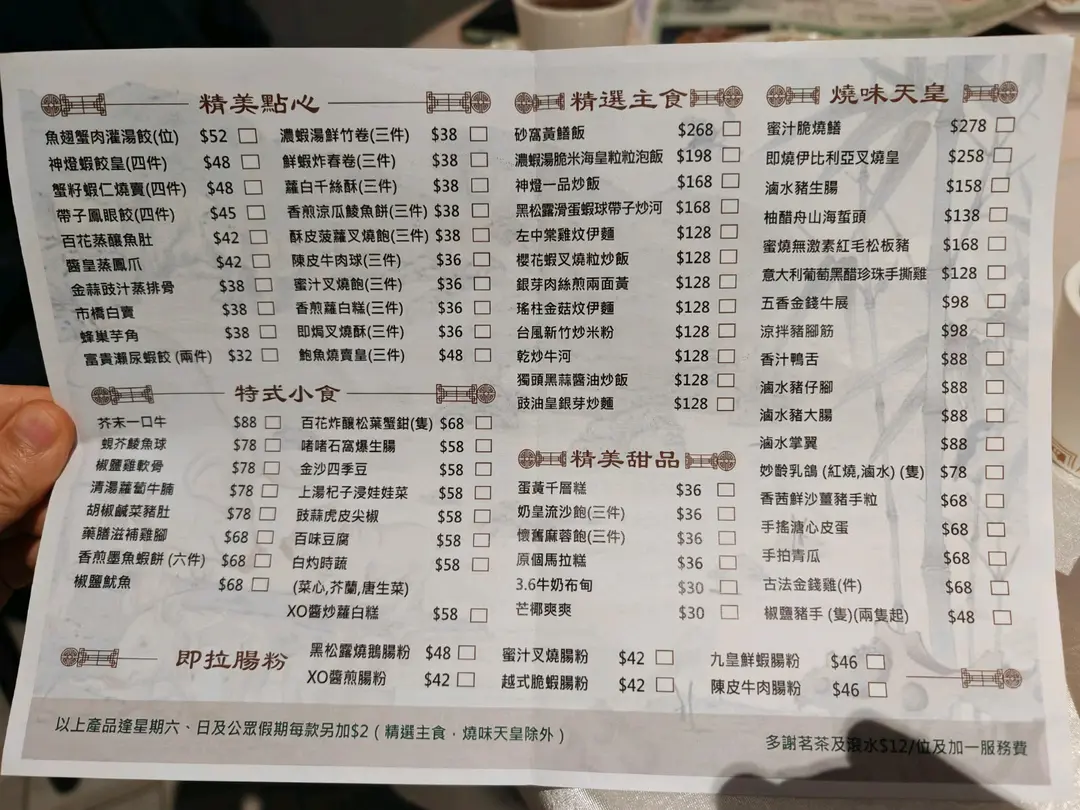 精美點心
魚翅蟹肉灌湯餃(位) $52
神燈蝦餃皇(四件) $48
蟹籽蝦仁燒賣(四件) $48
帶子鳳眼餃(四件) $45
百花蒸釀魚肚 $42
醬皇蒸鳳爪 $42
金蒜豉汁蒸排骨 $38
市橋白賣 $38
蜂巢芋角 $38
富貴瀨尿蝦餃 (兩件) $32
濃蝦湯鮮竹卷(三件) $38
鮮蝦炸春卷(三件) $38
蘿白千絲酥(三件) $38
香煎涼瓜鯪魚餅(三件) $38
酥皮菠蘿叉燒飽(三件) $38
陳皮牛肉球(三件) $36
蜜汁叉燒飽(三件) $36
香煎蘿白糕(三件) $36
即焗叉燒酥(三件) $36
鮑魚燒賣皇(三件) $48
特式小食
芥末一口牛 $88
蜆芥鯪魚球 $78
椒鹽雞軟骨 $78
清湯蘿蔔牛腩 $78
胡椒鹹菜豬肚 $78
藥膳滋補雞腳 $68
香煎墨魚蝦餅 (六件) $68
椒鹽魷魚 $68
百花炸釀松葉蟹鉗(隻) $68
啫啫石窩爆生腸 $58
金沙四季豆 $58
上湯杞子浸娃娃菜 $58
豉蒜虎皮尖椒 $58
百味豆腐 $58
白灼時蔬 $58
(菜心,芥蘭,唐生菜)
XO醬炒蘿白糕 $58
精選主食
砂窩黃鱔飯 $268
濃蝦湯脆米海皇粒粒泡飯 $198
神燈一品炒飯 $168
黑松露滑蛋蝦球帶子炒河 $168
左中棠雞炆伊麵 $128
櫻花蝦叉燒粒炒飯 $128
銀芽肉絲煎兩面黃 $128
瑤柱金菇炆伊麵 $128
台風新竹炒米粉 $128
乾炒牛河 $128
獨頭黑蒜醬油炒飯 $128
豉油皇銀芽炒麵 $128
精美甜品
蛋黃千層糕 $36
奶皇流沙飽(三件) $36
懷舊麻蓉飽(三件) $36
原個馬拉糕 $36
3.6牛奶布甸 $30
芒椰爽爽 $30
燒味天皇
蜜汁脆燒鱔 $278
即燒伊比利亞叉燒皇 $258
滷水豬生腸 $158
柚醋舟山海蜇頭 $138
蜜燒無激素紅毛松板豬 $168
意大利葡萄黑醋珍珠手撕雞 $128
五香金錢牛展 $98
涼拌豬腳筋 $98
香汁鴨舌 $88
滷水豬仔腳 $88
滷水豬大腸 $88
滷水掌翼 $88
妙齡乳鴿 (紅燒,滷水) (隻) $78
香茜鮮沙薑豬手粒 $68
手搖溏心皮蛋 $68
手拍青瓜 $68
古法金錢雞(件) $68
椒鹽豬手 (隻)(兩隻起) $48
即拉腸粉
黑松露燒鵝腸粉 $48
XO醬煎腸粉 $42
蜜汁叉燒腸粉 $42
越式脆蝦腸粉 $42
九皇鮮蝦腸粉 $46
陳皮牛肉腸粉 $46
以上產品逢星期六、日及公眾假期每款另加$2 ( 精選主食，燒味天皇除外 )
多謝茗茶及滾水$12/位及加一服務費